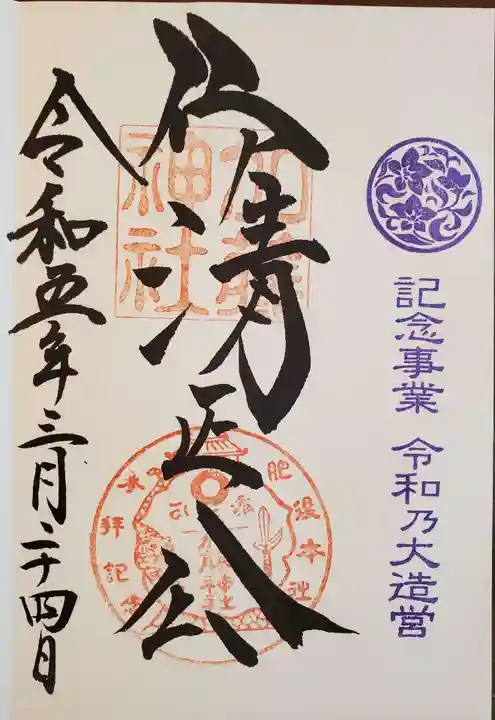 記念事業 令和乃大造営
仰清正公
加藤
神社
肥後本社
令和五年三月二十四日